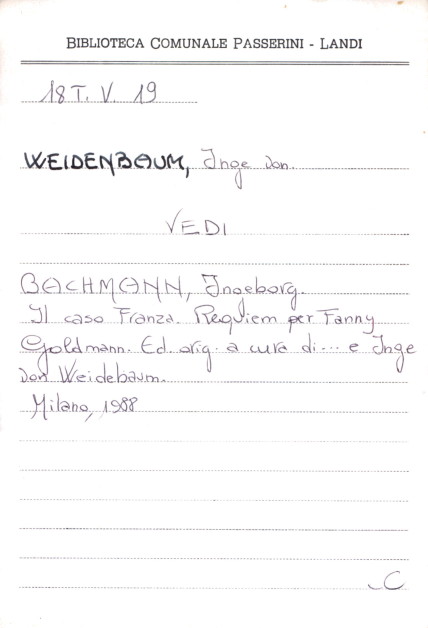 BIBLIOTECA COMUNALE PASSERINI - LANDI
18 T. V. 19
WEIDENBAUM, Inge von.
VEDI
BACHMANN, Ingeborg.
Il caso Franza. Requiem per Fanny
Goldmann. Ed. orig. a cura di... e Inge
von Weidebaum.
Milano, 1988
C